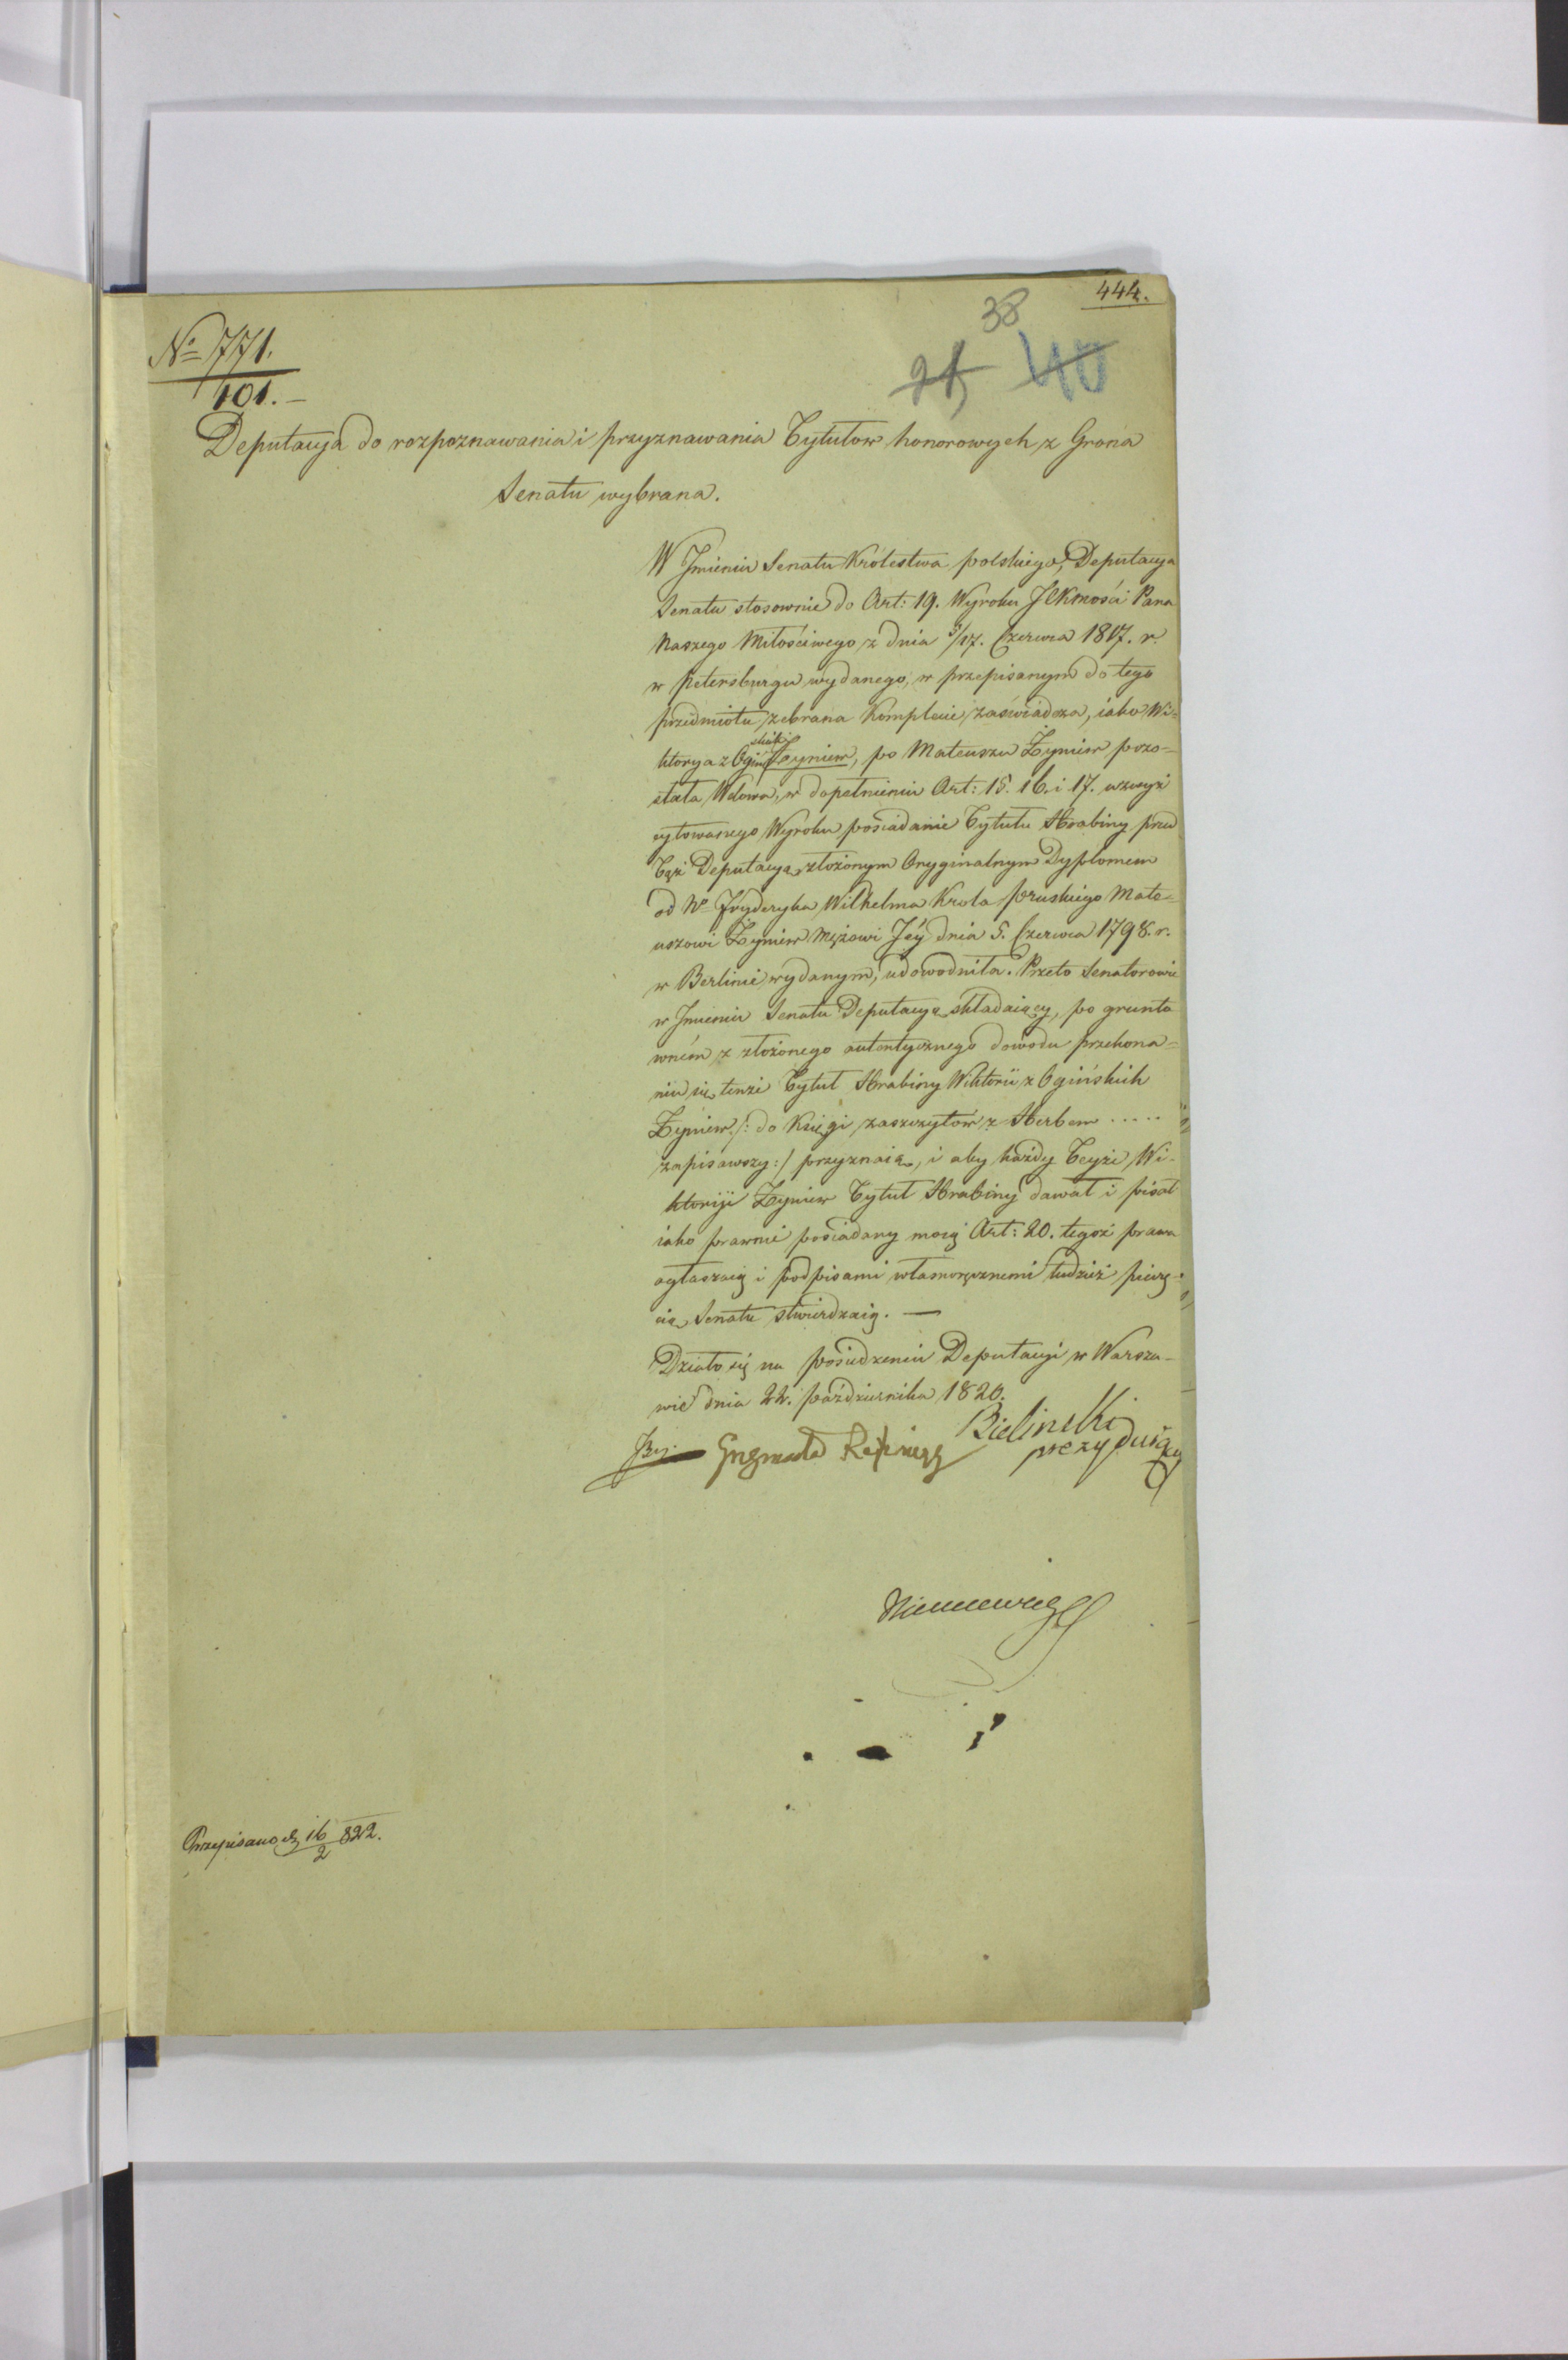 444.
38
25 40
No 771.
101.—
Deputacya do rozpoznawania i przyznawania Tytułow honorowych z Grona
Senatu wybrana.
W Jmieniu Senatu Królestwa polskiego, Deputacya
Senatu stosownie do Art: 19. Wyroku JCKmości Pana
Naszego Miłościwego z dnia 5/17. Czerwca 1817. r.
w Petersburgu wydanego, w przepisanym do tego
przedmiotu zebrana Komplecie zaświadcza, iako Wi=
ktorya z Ogińskich Żyniew, po Mateuszu Żyniew pozo=
stała Wdowa, w dopełnieniu Art: 15. 16. i 17. wzwyż
cytowanego Wyroku posiadanie Tytułu Hrabiny przed
Tąż Deputacyą złożonym Oryginalnym Dyplomem
od No Fryderyka Wilhelma Krola pruskiego Mate=
uszowi Żyniew Mężowi Jéy dnia 5. Czerwca 1798. r.
w Berlinie wydanym, udowodniła. Przeto Senatorowie
w Jmieniu Senatu Deputacyą składaiący, po grunto
wném z złożonego autentycznego dowodu przekona=
niu się, tenże Tytuł Hrabiny Wiktorii z Ogińskich
Żyniew /: do Księgi zaszczytów z Herbem .....
zapisawszy :/ przyznaią, i aby każdy Teyże Wi-
ktoryi Żyniew Tytuł Hrabiny dawał i pisał
iako prawnie posiadany mocą Art: 20. tegoż prawa
ogłaszaią i podpisami własnoręcznemi tudzież pieczę-
cią Senatu stwierdzaią. —
Działo się na posiedzeniu Deputacyi w Warsza-
wie dnia 22. października 1820.
Bielinski
prezyduiący
Niemcewicz
Przepisano d. 16/2 822.